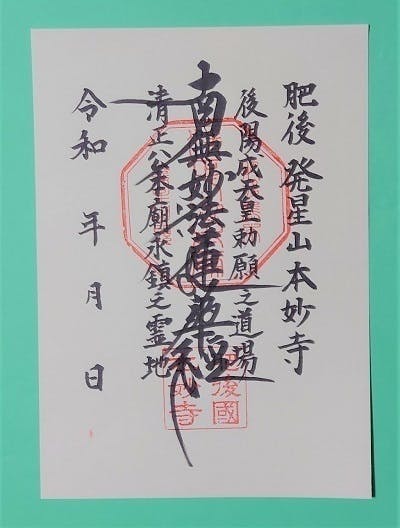 肥後 発星山本妙寺
後陽成天皇勅願之道場
南無妙法蓮華経
清正公本廟永鎮之霊地
令和 年 月 日
肥後國
本妙寺